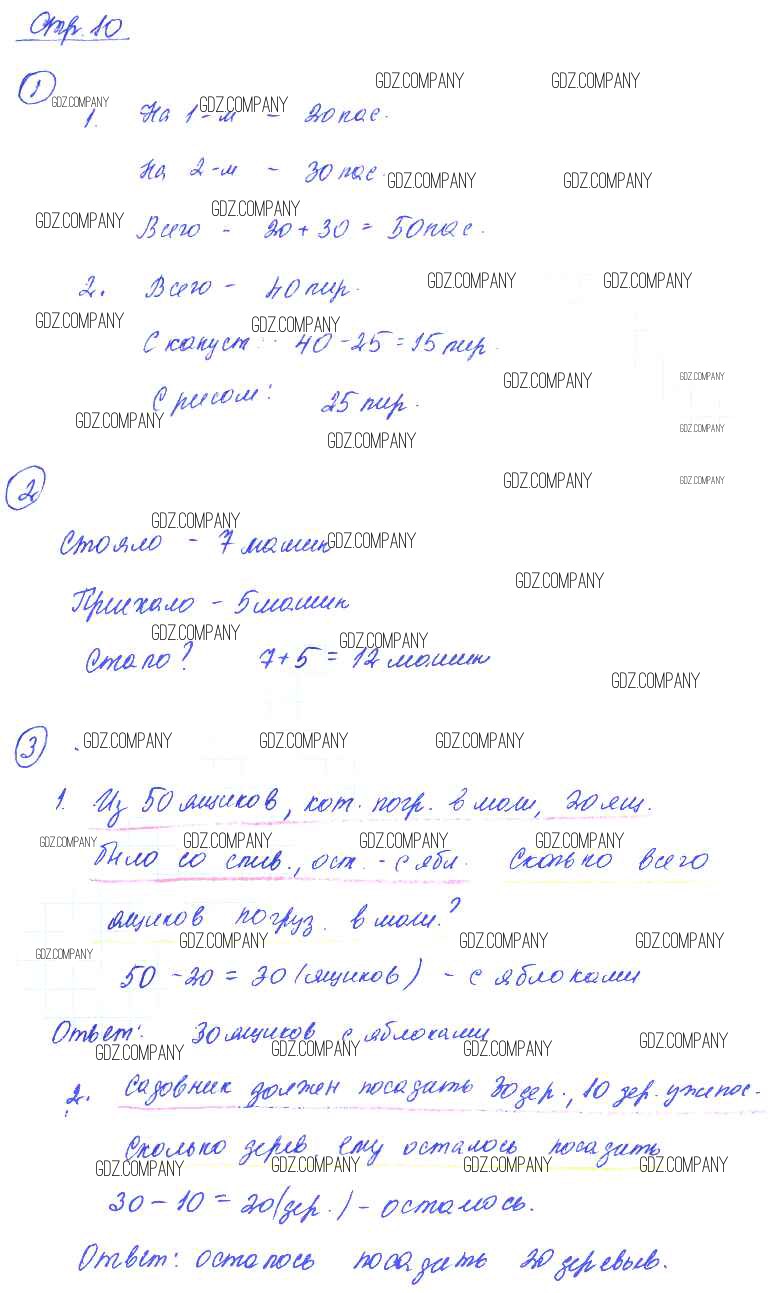 Стр. 10
GDZ.COMPANY GDZ.COMPANY
1
GDZ.COMPANY GDZ.COMPANY
1. На 1-м - 20 пас.
На 2-м - 30 пас.
GDZ.COMPANY GDZ.COMPANY
GDZ.COMPANY GDZ.COMPANY
Всего - 20 + 30 = 50 пас.
2. Всего - 40 пир.
GDZ.COMPANY GDZ.COMPANY
GDZ.COMPANY GDZ.COMPANY
С капуст: 40 - 25 = 15 пир.
GDZ.COMPANY GDZ.COMPANY
С рисом: 25 пир.
GDZ.COMPANY GDZ.COMPANY
GDZ.COMPANY
2
GDZ.COMPANY GDZ.COMPANY
GDZ.COMPANY
Стояло - 7 машин
GDZ.COMPANY
GDZ.COMPANY
Приехало - 5 машин
GDZ.COMPANY GDZ.COMPANY
Стало? 7 + 5 = 12 машин
GDZ.COMPANY
3
GDZ.COMPANY GDZ.COMPANY GDZ.COMPANY
1. Из 50 ящиков, кот. погр. в маш, 20 ящ.
GDZ.COMPANY GDZ.COMPANY GDZ.COMPANY GDZ.COMPANY
было со слив., ост. - с ябл. Сколько всего
ящиков погруз. в маш.?
GDZ.COMPANY GDZ.COMPANY GDZ.COMPANY GDZ.COMPANY
50 - 20 = 30 (ящиков) - с яблоками
Ответ: 30 ящиков с яблоками
GDZ.COMPANY GDZ.COMPANY GDZ.COMPANY GDZ.COMPANY
2. Садовник должен посадить 30 дер., 10 дер. уже пос.
Сколько дерев. ему осталось посадить
GDZ.COMPANY GDZ.COMPANY GDZ.COMPANY GDZ.COMPANY
30 - 10 = 20 (дер.) - осталось.
Ответ: осталось посадить 20 деревьев.